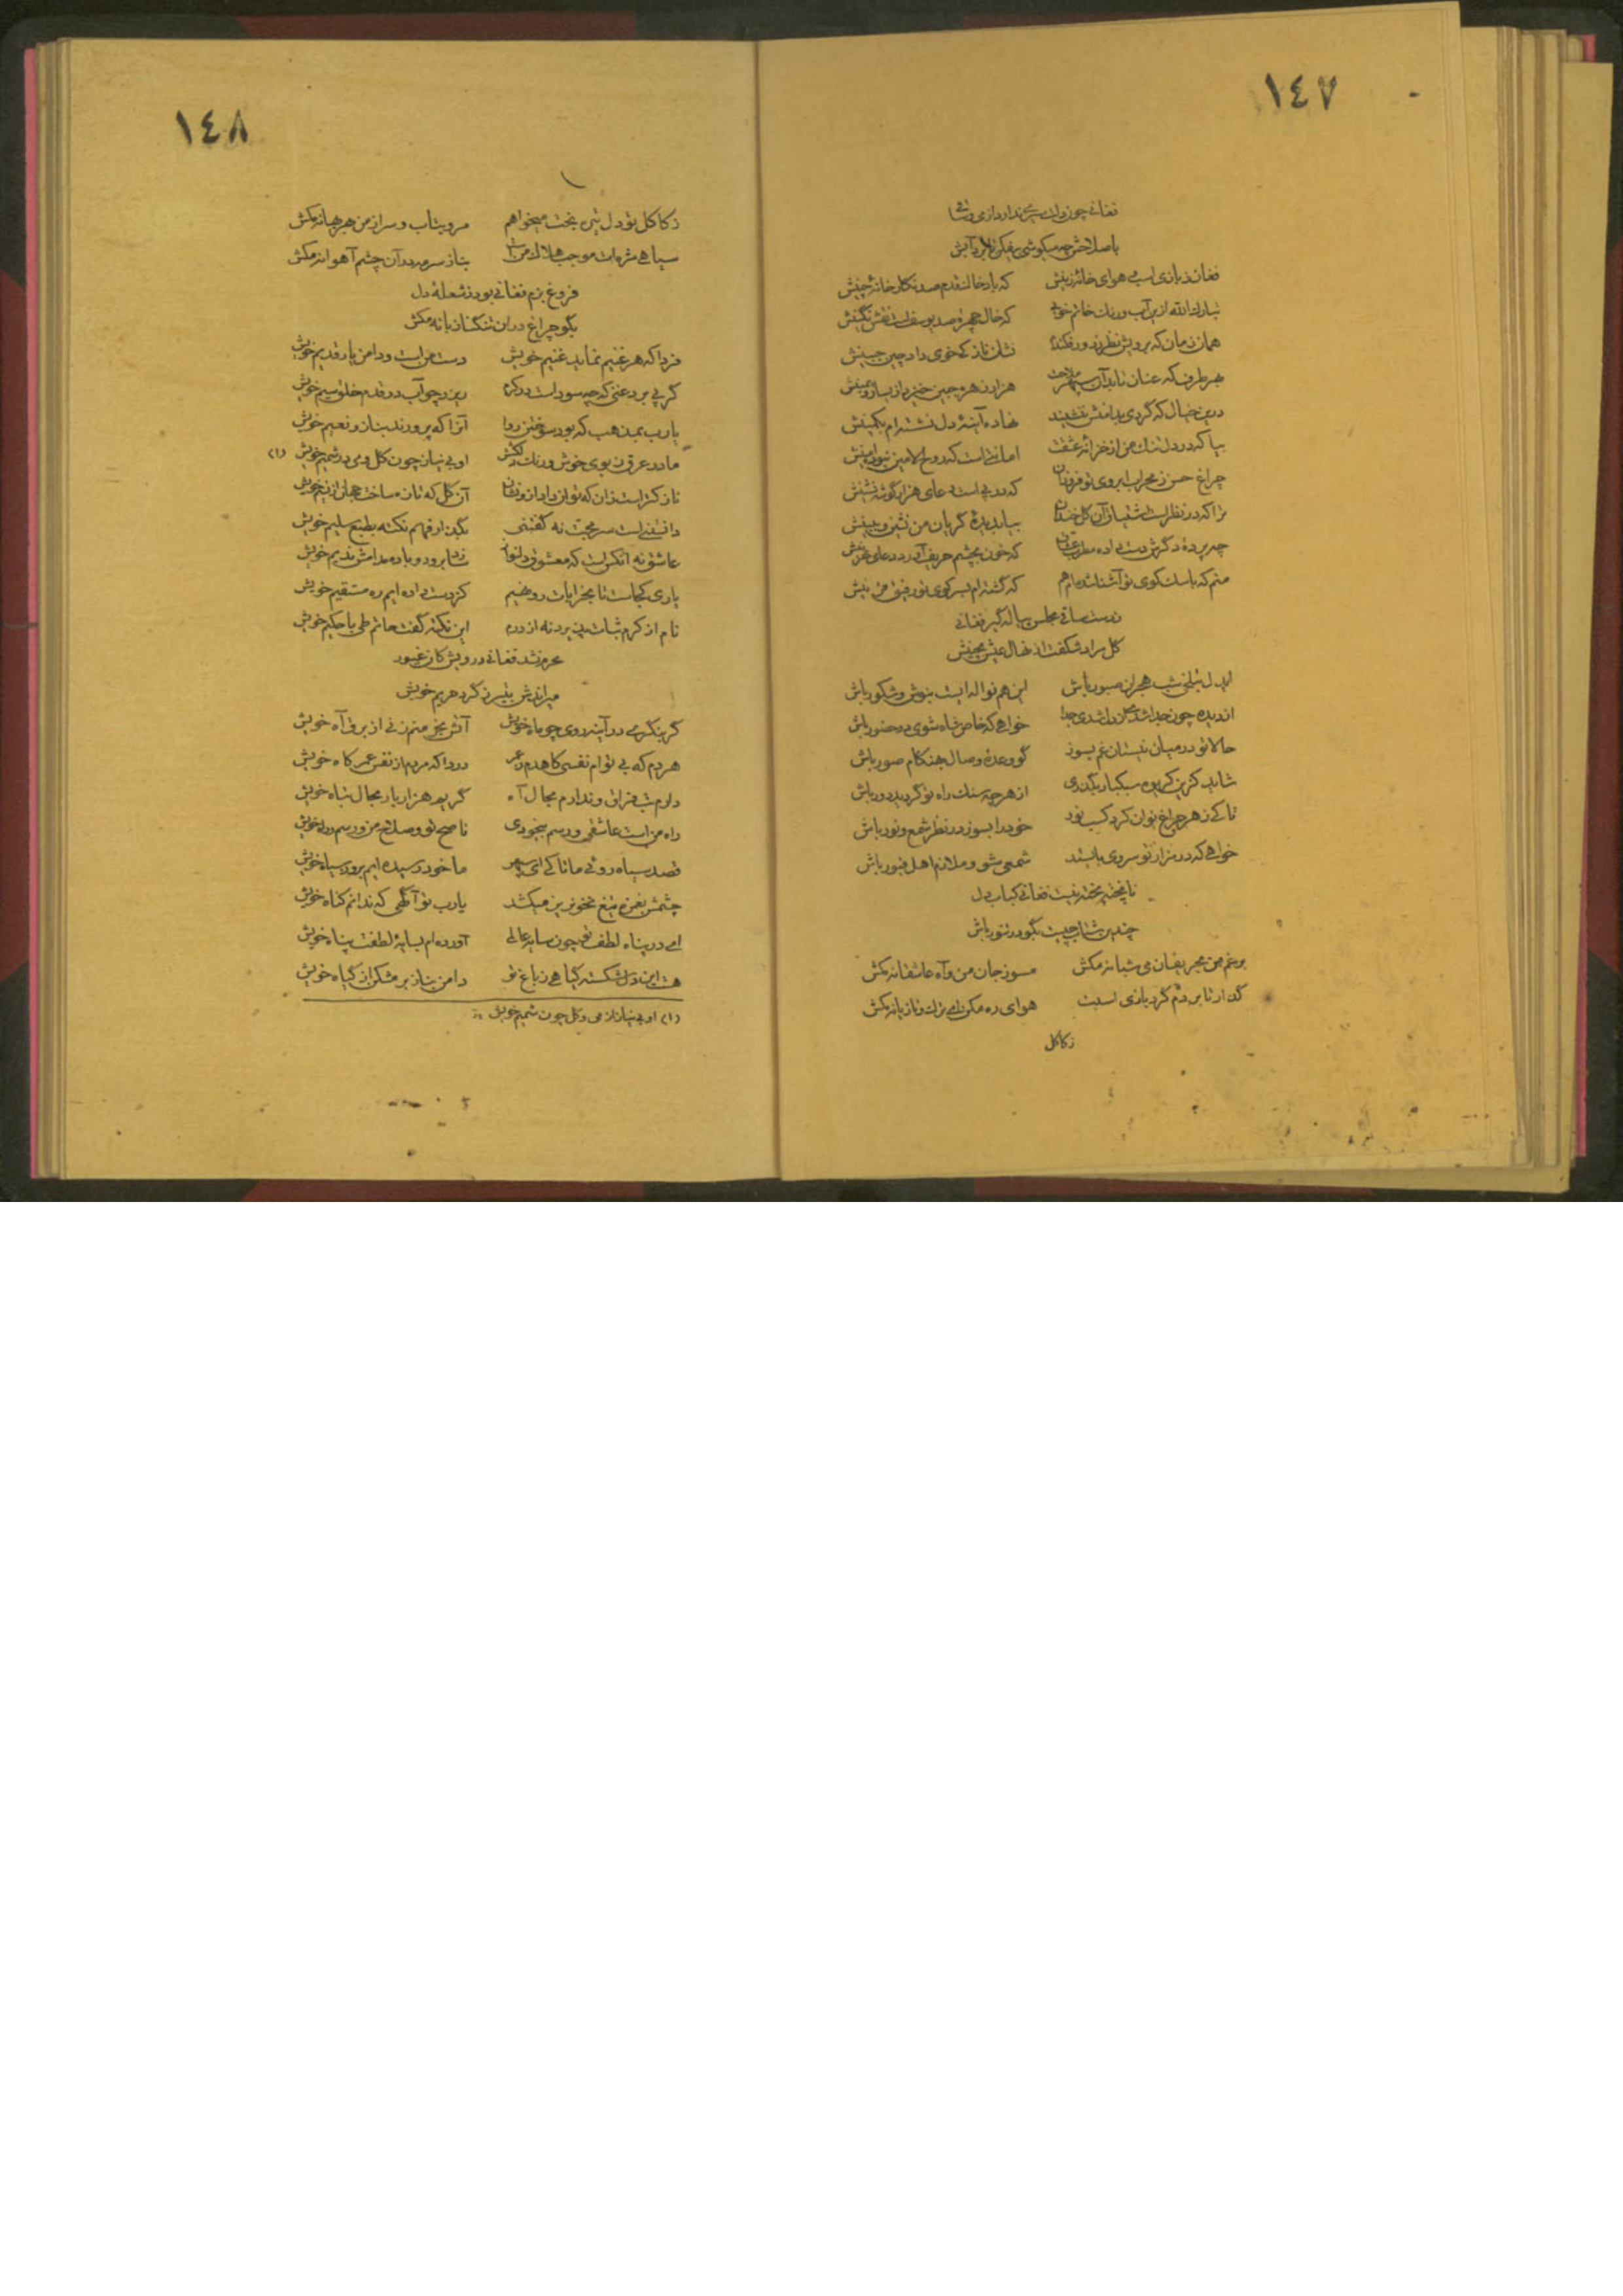 ١٤٧
فغانی چون
باصلاحش چه میکوشی
فغان ز بازی اسب و هوای خانهٔ زینش که باد خاک قدم صد نگارخانهٔ چینش
تبارك الله ازین آب ورنك خاتم خوبی که خال چهرهٔ صد یوسفست نقش نگینش
همان زمان که برویش نظر نشان ناز که خوی داد چین جبینش
بهر طرف که عنان تابد آن سپهر ملاحت هزار زهره جبین خیزد از یسار و یمینش
درین خیال که گردی بدامنش ننشیند نهاده آینهٔ دل نشسته‌ام بکمینش
بیا که در دل تنك من از خزانهٔ عشقت امانتیست که روح الامین نبود امینش
چراغ حسن ز محراب ابروی تو فروزان که در پی است دعای هزار گوشه نشینش
ترا که در نظرست اشتیاق آن گل خندان بیا بدیدهٔ گریان من نشین و ببینش
چه پرده که خون بچشم حریف
منم که با سك کوی تو آشنا شده‌ام هم که گشته‌ام بسر کوی تو رفیق
ز دست ساقی مجلس پیاله گیر فغانی
گل مراد شگفت از نهال عیش بچینش
ایدل بتلخی شب هجران صبور باش این هم نواله ایست بنوش و شکور باش
از دیده چون جدا شدی خواهی که خاص شاه شوی در حضور باش
حالا تو در میان نیستان غم بسوز گو وعدهٔ وصال بهنگام صور باش
شاید کزین گریوه سبکبار بگذری از هر چه سنك راه تو گردید دور باش
تا کی ز هر چراغ توان کرد کسب نور خود را بسوز در نظر شمع و نور باش
خواهی که در مزار تو سروی بایستد شمعی شو و ملازم اهل قبور باش
نا پخته پخته نیست فغانی کباب دل
چندین شتاب چیست بگو در تنور باش
برغم من بحریفان می شبانه مکش مسوز جان من و آه عاشقانه مکش
گدا ز تاب هوای ره مکن و تازیانه مکش
ز کاکل
١٤٨
ز کاکل تو دل تیره بخت میخواهم مرو بتاب و سر از من بهر بهانه مکش
سیاهی مژه‌ات موجب هلاك من است بناز سرمه در آن چشم آهوانه مکش
فروغ بزم فغانی بود ز شعلهٔ دل
بگو چراغ در این تنگنا زبانه مکش
فردا که هر غنیم نماید غنیم خویش دست من است و دامن یار قدیم خویش
گر پی برد غنی که چه سود است در کرم ریزد چو آب در قدم خلق سیم خویش
یارب بمذهب که بود سوختن روا آنرا که پرورند بناز و نعیم خویش
ما در عرق ز بوی خوش و رنك دلکش او بی نیاز چون گل و می در شمیم خویش (١)
نازکتر است زان که توان داد ازو نشان آن گل که تازه ساخت جهان از نسیم خویش
دانستنی است سر محبت نه گفتنی بگذار فهم نکته بطبع سلیم خویش
عاشق نه آنکس است که معشوق دلنواز شاهد برود و باده مدامش ندیم خویش
یاری کجاست تا بخرابات رو نهیم کز دست داده ایم ره مستقیم خویش
نام از کرم ثبات پذیرد نه از درم این نکته گفت حاتم طی با حکیم خویش
محرم نشد فغانی درویش کان غیور
میراندش بتیر ز گرد حریم خویش
گر بنگری در آینه روی چو ماه خویش آتش بخرمنم زنی از برق آه خویش
هر دم که بی توام نفسی کاهدم ز عمر دردا که مردم از نفس عمر کاه خویش
دارم شب فراق و ندارم مجال آه گریم هزار بار بحال تباه خویش
راه من است عاشقی و رسم بیخودی ناصح تو و صلاح من و رسم و راه خویش
قصد سیاه روئی ما تا کی ای سپهر ما خود رسیده ایم بروز سیاه خویش
چشمش بغمزه تیغ بخونریز میکشد یارب تو آگهی که ندانم گناه خویش
ای در پناه لطف تو چون سایه عالمی آورده‌ام بسایهٔ لطفت پناه خویش
هست این دل شکسته گیاهی ز باغ تو دامن بناز بر مشکن از گیاه خویش
(١) او بی نیاز از می و گل چون شمیم خویش